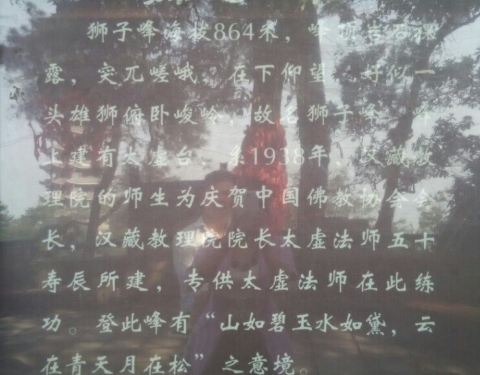 狮子峰海拔864米，峰顶岩石裸
露，突兀嵯峨，在下仰望，好似一
头雄狮俯卧峻岭，故名狮子峰。峰
上建有太虚台，系1938年，汉藏教
理院的师生为庆贺中国佛教协会会
长，汉藏教理院院长太虚法师五十
寿辰所建，专供太虚法师在此练
功。登此峰有“山如碧玉水如黛，云
在青天月在松”之意境。